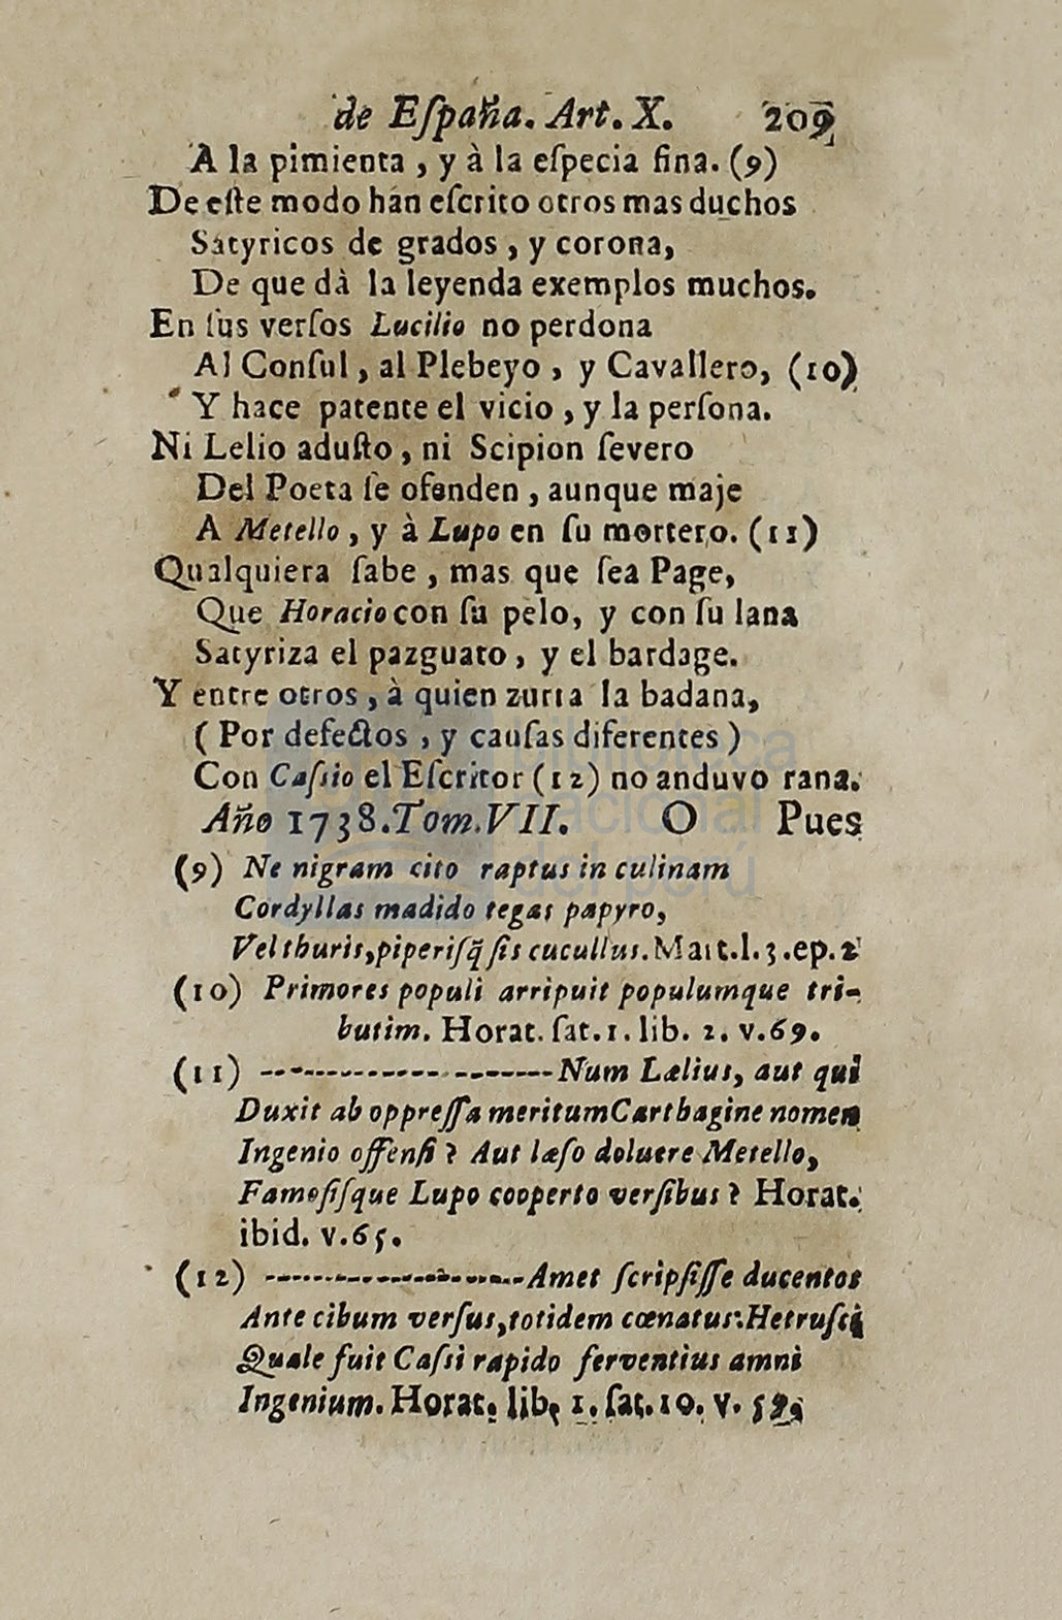 de Eſpaña. Art. X. 209
A la pimienta , y à la eſpecia fina. (9)
De eſte modo han eſcrito otros mas duchos
Satyricos de grados , y corona,
De que dà la leyenda exemplos muchos.
En ſus verſos Lucilio no perdona
Al Conſul , al Plebeyo , y Cavallero, (10)
Y hace patente el vicio , y la perſona.
Ni Lelio aduſto , ni Scipion ſevero
Del Poeta ſe ofenden , aunque maje
A Metello , y à Lupo en ſu mortero. (11)
Qualquiera ſabe , mas que ſea Page,
Que Horacio con ſu pelo, y con ſu lana
Satyriza el pazguato , y el bardage.
Y entre otros , à quien zurra la badana,
( Por defectos , y cauſas diferentes )
Con Caſsio el Eſcritor (12) no anduvo rana.
Año 1738. Tom. VII. O Pues
(9) Ne nigram cito raptus in culinam
Cordyllas madido tegas papyro,
Vel thuris, piperiſq̃ ſis cucullus. Mart. l. 3. ep. 2
(10) Primores populi arripuit populumque tri-
butim. Horat. ſat. 1. lib. 2. v. 69.
(11) --------------------Num Lælius, aut qui
Duxit ab oppreſſa meritum Carthagine nomen
Ingenio offenſi ? Aut læſo doluere Metello,
Famoſiſque Lupo cooperto verſibus ? Horat.
ibid. v. 65.
(12) --------------------Amet ſcripſiſſe ducentos
Ante cibum verſus, totidem cœnatus: Hetruſci
Quale fuit Caſsi rapido ferventius amni
Ingenium. Horat. lib. 1. ſat. 10. v. 59.
biblioteca
nacional
del perú